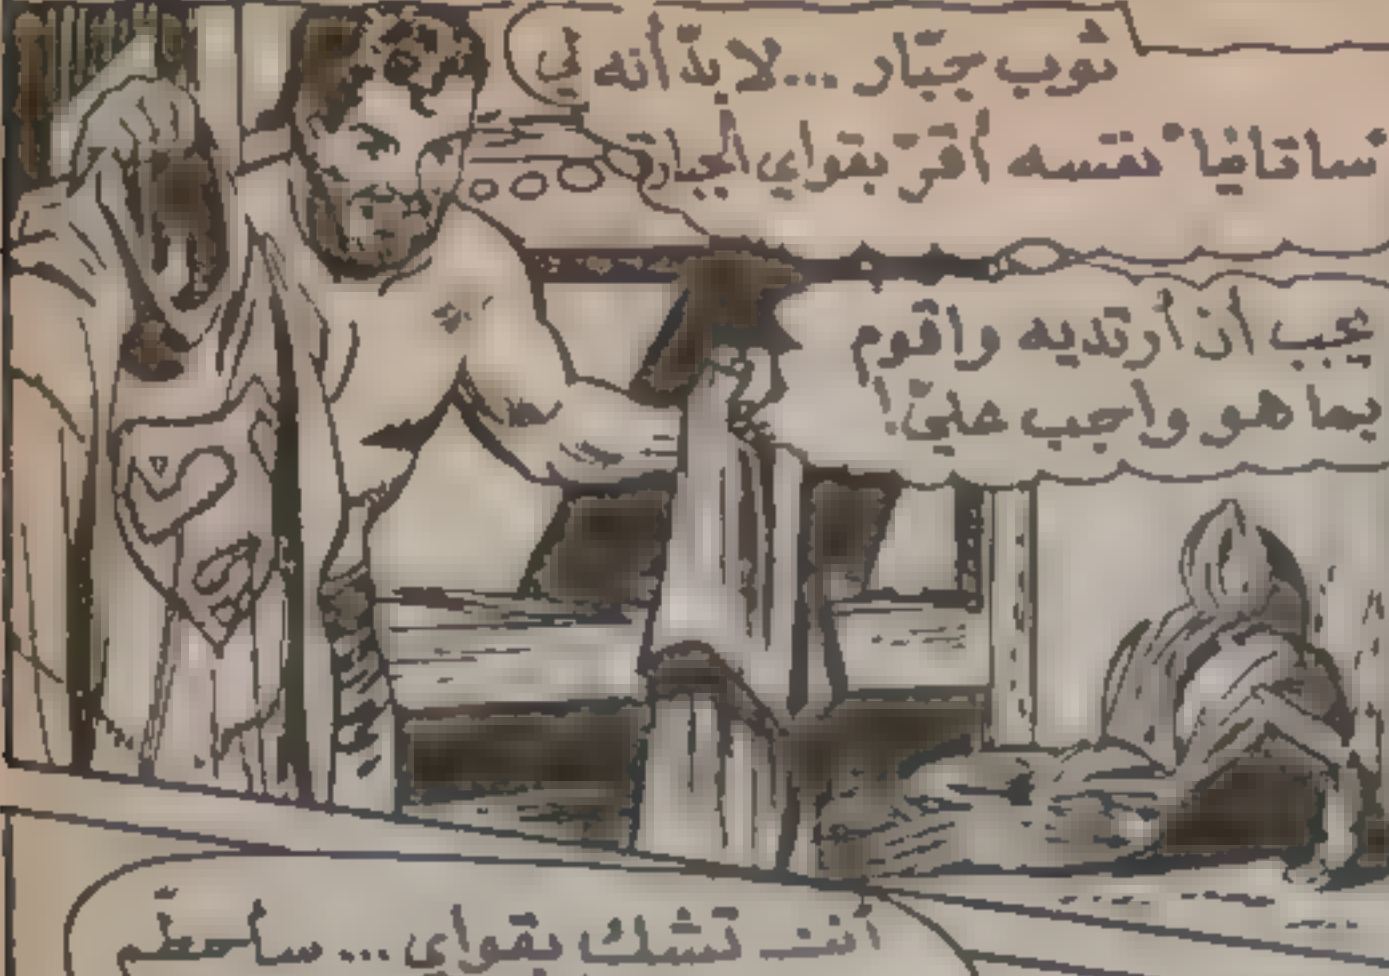 ثوب جبّار ... لا بدّ أنه لي
"ساتانيا" نفسه أقرّ بقواي الجبارة
يجب أن أرتديه واقوم
بما هو واجب عليّ!
أنت تشك بقواي ... سأحطّم